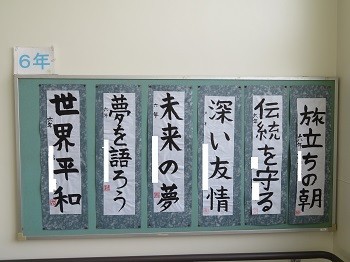 6年
旅立ちの朝
伝統を守る
深い友情
未来の夢
夢を語ろう
世界平和